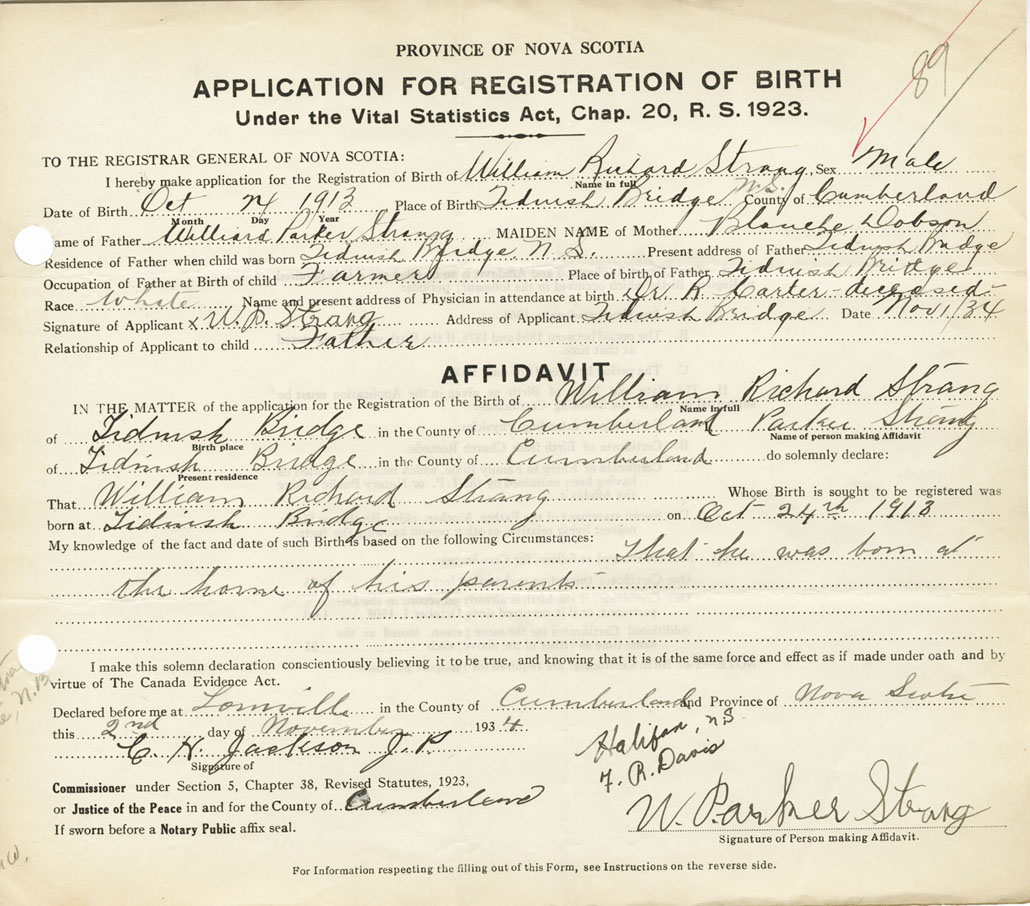 PROVINCE OF NOVA SCOTIA
APPLICATION FOR REGISTRATION OF BIRTH
Under the Vital Statistics Act, Chap. 20, R. S. 1923.
89
TO THE REGISTRAR GENERAL OF NOVA SCOTIA:
I hereby make application for the Registration of Birth of William Richard Strang Sex Male
Name in full
Date of Birth Oct 24 1913 Place of Birth Tidnish Bridge N.S. County of Cumberland
Month Day Year
ame of Father William Parker Strang MAIDEN NAME of Mother Blanche Dobson
Residence of Father when child was born Tidnish Bridge N. S. Present address of Father Tidnish Bridge
Occupation of Father at Birth of child Farmer Place of birth of Father Tidnish Bridge
Race White Name and present address of Physician in attendance at birth Dr R. Carter - deceased -
Signature of Applicant x W. P. Strang Address of Applicant Tidnish Bridge Date Nov 1/34
Relationship of Applicant to child Father
AFFIDAVIT
IN THE MATTER of the application for the Registration of the Birth of William Richard Strang
Name in full
of Tidnish Bridge in the County of Cumberland Parker Strang
Birth place Name of person making Affidavit
of Tidnish Bridge in the County of Cumberland do solemnly declare:
Present residence
That William Richard Strang Whose Birth is sought to be registered was
born at Tidnish Bridge on Oct 24th 1913
My knowledge of the fact and date of such Birth is based on the following Circumstances: That he was born at
the home of his parents
I make this solemn declaration conscientiously believing it to be true, and knowing that it is of the same force and effect as if made under oath and by
virtue of The Canada Evidence Act.
Declared before me at Lornville in the County of Cumberland and Province of Nova Scotia
this 2nd day of November 1934
C. H. Jackson J. P.
Signature of
Halifax, N.S.
F. R. Davis
Commissioner under Section 5, Chapter 38, Revised Statutes, 1923,
or Justice of the Peace in and for the County of Cumberland
W. Parker Strang
If sworn before a Notary Public affix seal.
Signature of Person making Affidavit.
For Information respecting the filling out of this Form, see Instructions on the reverse side.